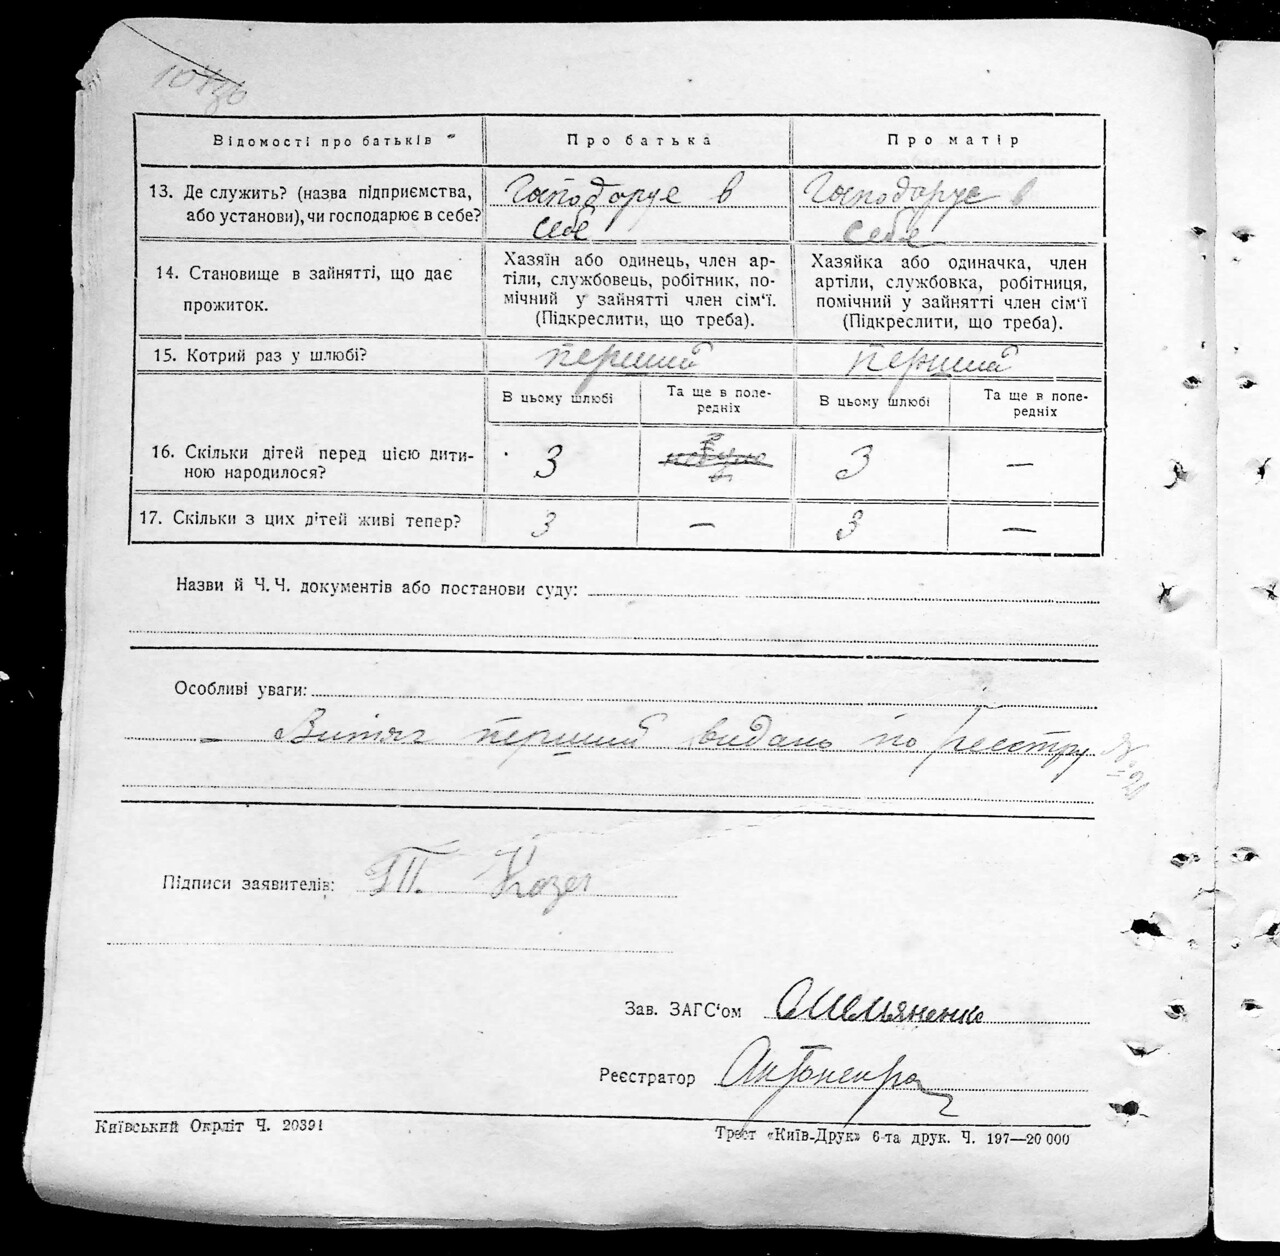 Відомості про батьків
Про батька
Про матір
13. Де служить? (назва підприємства, або установи), чи господарює в себе?
Господарує в
себе
Господарує в
себе
14. Становище в зайнятті, що дає
прожиток.
Хазяїн або одинець, член ар-
тіли, службовець, робітник, по-
мічний у зайнятті член сім'ї.
(Підкреслити, що треба).
Хазяйка або одиначка, член
артіли, службовка, робітниця,
помічний у зайнятті член сім'ї
(Підкреслити, що треба).
15. Котрий раз у шлюбі?
перший
перший
В цьому шлюбі
Та ще в попе-
редніх
В цьому шлюбі
Та ще в попе-
редніх
16. Скільки дітей перед цією дити-
ною народилося?
3
3
—
17. Скільки з цих дітей живі тепер?
3
—
3
—
Назви й Ч. Ч. документів або постанови суду:
Особливі уваги:
– Витяг перший видано по реєстру
Підписи заявителів: П. Козел
Зав. ЗАГС'ом Омельяненко
Реєстратор
Київський Окрліт Ч. 20391
Трест «Київ-Друк» 6-та друк. Ч. 197—20 000